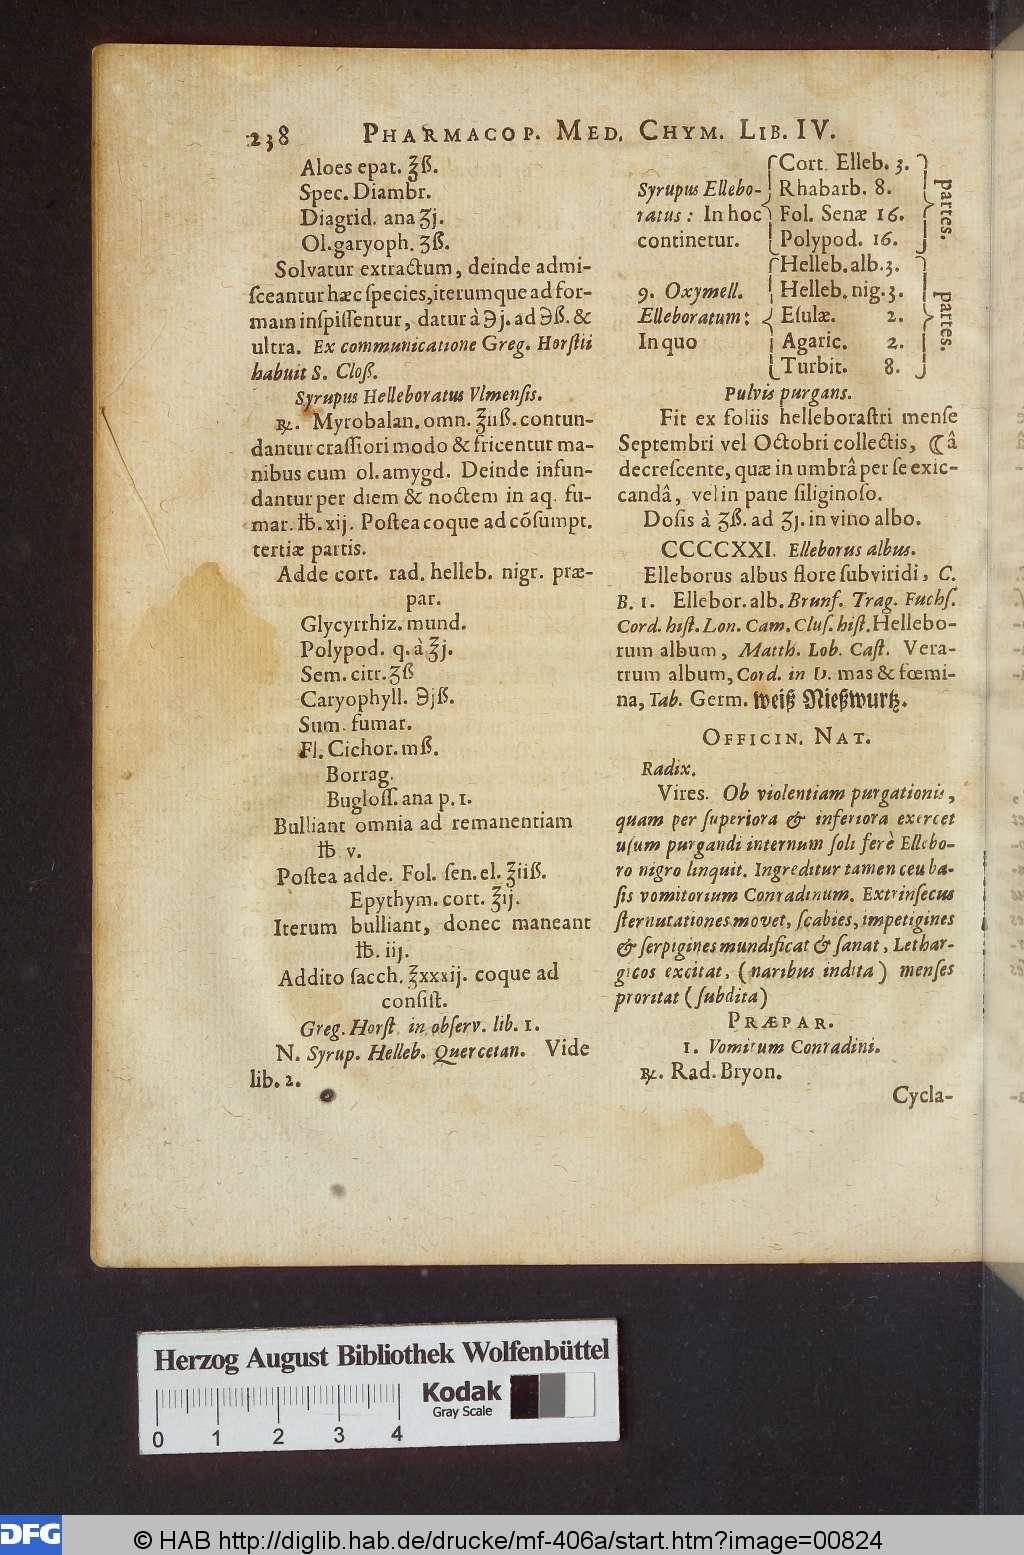 238 PHARMACOP. MED. CHYM. LIB. IV.
Aloes epat. ʒß.
Spec. Diambr.
Diagrid. ana ʒj.
Ol. garyoph. ʒß.
Solvatur extractum, deinde admi-
ſceantur hæc ſpecies, iterumque ad for-
mam inſpiſſentur, datur à ℈j. ad ℈ß. &
ultra. Ex communicatione Greg. Horſtii
habuit S. Cloß.
Syrupus Helleboratus Vlmenſis.
℞. Myrobalan. omn. ℥iiß. contun-
dantur craſſiori modo & fricentur ma-
nibus cum ol. amygd. Deinde infun-
dantur per diem & noctem in aq. fu-
mar. ℔. xij. Poſtea coque ad cõſumpt.
tertiæ partis.
Adde cort. rad. helleb. nigr. præ-
par.
Glycyrrhiz. mund.
Polypod. q. à ℥j.
Sem. citr. ʒß
Caryophyll. ℈jß.
Sum. fumar.
Fl. Cichor. mß.
Borrag.
Bugloſſ. ana p. 1.
Bulliant omnia ad remanentiam
℔ v.
Poſtea adde. Fol. ſen. el. ℥iiß.
Epythym. cort. ℥ij.
Iterum bulliant, donec maneant
℔. iij.
Addito ſacch. ℥xxxij. coque ad
conſiſt.
Greg. Horſt in obſerv. lib. 1.
N. Syrup. Helleb. Quercetan. Vide
lib. 2.
Syrupus Ellebo-
ratus: In hoc
continetur.
Cort. Elleb. 3.
Rhabarb. 8.
Fol. Senæ 16.
Polypod. 16.
partes.
9. Oxymell.
Elleboratum:
In quo
Helleb. alb. 3.
Helleb. nig. 3.
Eſulæ. 2.
Agaric. 2.
Turbit. 8.
partes.
Pulvis purgans.
Fit ex foliis helleboraſtri menſe
Septembri vel Octobri collectis, ☾â
decreſcente, quæ in umbrâ per ſe exic-
candâ, vel in pane ſiliginoſo.
Doſis à ʒß. ad ʒj. in vino albo.
CCCCXXI. Elleborus albus.
Elleborus albus flore ſubviridi, C.
B. 1. Ellebor. alb. Brunf. Trag. Fuchſ.
Cord. hiſt. Lon. Cam. Cluſ. hiſt. Hellebo-
rum album, Matth. Lob. Caſt. Vera-
trum album, Cord. in D. mas & fœmi-
na, Tab. Germ. weiß Nießwurtz.
OFFICIN. NAT.
Radix.
Vires. Ob violentiam purgationis,
quam per ſuperiora & inferiora exercet
uſum purgandi internum ſoli ferè Ellebo-
ro nigro linquit. Ingreditur tamen ceu ba-
ſis vomitorium Conradinum. Extrinſecus
ſternutationes movet, ſcabies, impetigines
& ſerpigines mundificat & ſanat, Lethar-
gicos excitat, (naribus indita) menſes
proritat (ſubdita)
PRÆPAR.
1. Vomitum Conradini.
℞. Rad. Bryon.
Cycla-
Herzog August Bibliothek Wolfenbüttel
Kodak
Gray Scale
0 1 2 3 4
DFG
© HAB http://diglib.hab.de/drucke/mf-406a/start.htm?image=00824